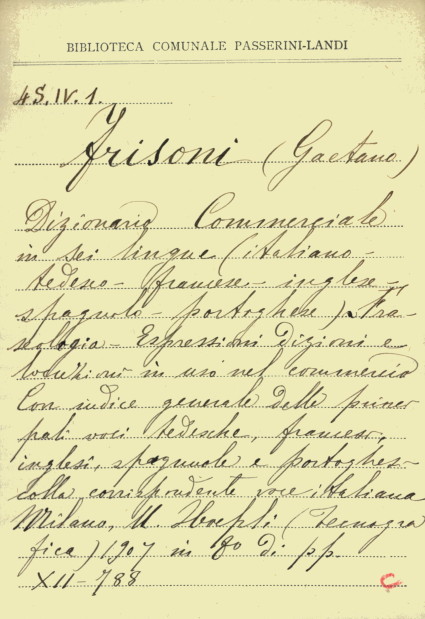 BIBLIOTECA COMUNALE PASSERINI-LANDI
4S.IV.1.
Frisoni (Gaetano)
Dizionario Commerciale
in sei lingue (italiano-
tedesco- francese- inglese-
spagnolo- portoghese). Fra-
seologia- Espressioni dizioni e
locuzioni in uso nel commercio
Con indice generale delle princi
pali voci tedesche, francesi,
inglesi, spagnuole e portoghes-
colla corrispondente voce italiana
Milano, U. Hoepli (Tecnogra
fica) 1907 in 8º di pp.
XII-788
C